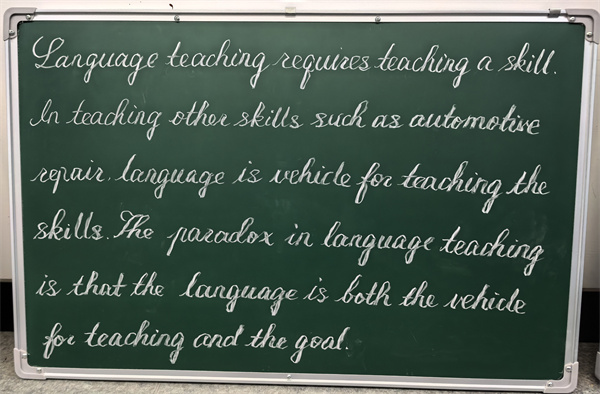 Language teaching requires teaching a skill.
In teaching other skills such as automotive
repair, language is vehicle for teaching the
skills. The paradox in language teaching
is that the language is both the vehicle
for teaching and the goal.